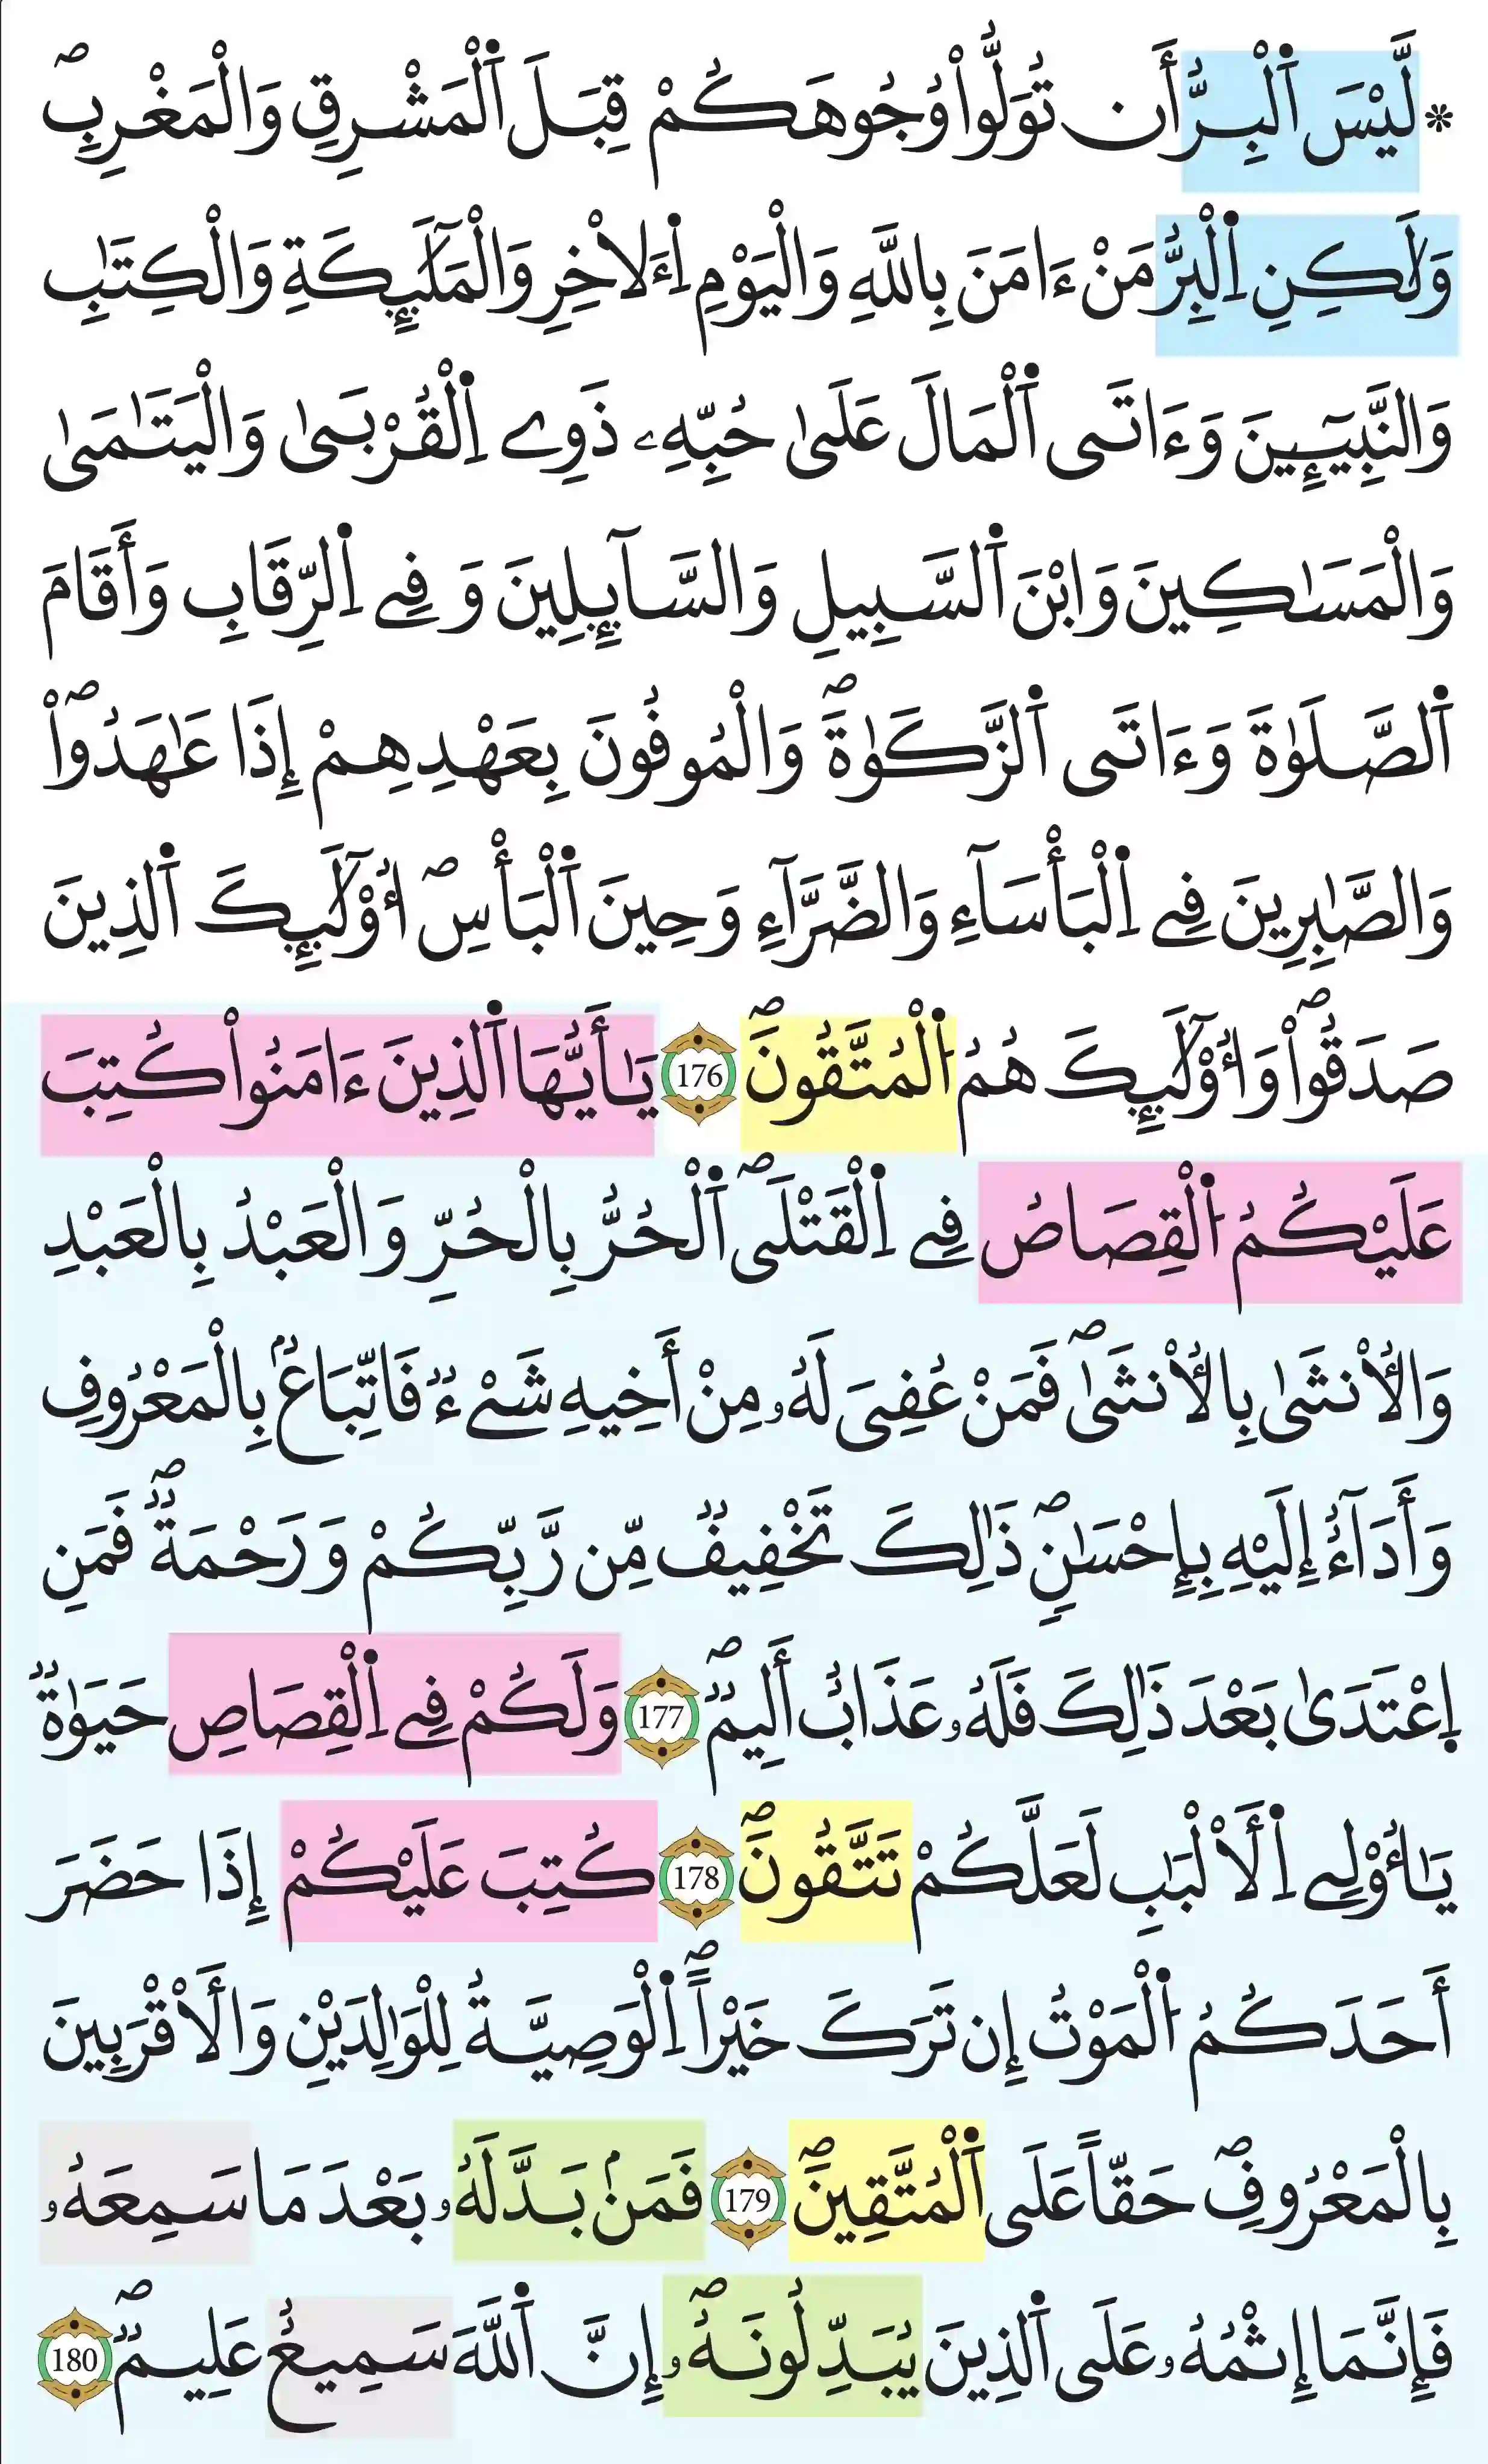 * لَّيْسَ اَ۬لْبِرُّ أَن تُوَلُّواْ وُجُوهَكُمْ قِبَلَ اَ۬لْمَشْرِقِ وَالْمَغْرِبِۖ
وَلَٰكِنِ اِ۬لْبِرُّ مَنْ ءَامَنَ بِاللَّهِ وَالْيَوْمِ اِ۬ءَلَاخِرِ وَالْمَلَٰٓئِكَةِ وَالْكِتَٰبِ
وَالنَّبِيٓـِٕينَ وَءَاتَى اَ۬لْمَالَ عَلَىٰ حُبِّهِۦ ذَوِے اِ۬لْقُرْبَىٰ وَالْيَتَٰمَىٰ
وَالْمَسَٰكِينَ وَابْنَ اَ۬لسَّبِيلِ وَالسَّآئِلِينَ وَفِے اِ۬لرِّقَابِ وَأَقَامَ
اَ۬لصَّلَوٰةَ وَءَاتَى اَ۬لزَّكَوٰةَۖ وَالْمُوفُونَ بِعَهْدِهِمْ إِذَا عَٰهَدُواْۖ
وَالصَّٰبِرِينَ فِے اِ۬لْبَأْسَآءِ وَالضَّرَّآءِ وَحِينَ اَ۬لْبَأْسِۖ أُوْلَٰٓئِكَ اَ۬لذِينَ
صَدَقُواْۖ وَأُوْلَٰٓئِكَ هُمُ اُ۬لْمُتَّقُونَۖ 176 يَٰأَيُّهَا اَ۬لذِينَ ءَامَنُواْ كُتِبَ
عَلَيْكُمُ اُ۬لْقِصَاصُ فِے اِ۬لْقَتْلَىۖ اَ۬لْحُرُّ بِالْحُرِّ وَالْعَبْدُ بِالْعَبْدِ
وَالُانثَىٰ بِالُانثَىٰۖ فَمَنْ عُفِىَ لَهُۥ مِنْ أَخِيهِ شَےْءٞ فَاتِّبَاعُۢ بِالْمَعْرُوفِ
وَأَدَآءٌ إِلَيْهِ بِإِحْسَٰنٖۖ ذَٰلِكَ تَخْفِيفٞ مِّن رَّبِّكُمْ وَرَحْمَةٞۖ فَمَنِ
اِ۪عْتَدَىٰ بَعْدَ ذَٰلِكَ فَلَهُۥ عَذَابٌ أَلِيمٞۖ 177 وَلَكُمْ فِے اِ۬لْقِصَاصِ حَيَوٰةٞ
يَٰأُوْلِے اِ۬لَالْبَٰبِ لَعَلَّكُمْ تَتَّقُونَۖ 178 كُتِبَ عَلَيْكُمْ إِذَا حَضَرَ
أَحَدَكُمُ اُ۬لْمَوْتُ إِن تَرَكَ خَيْراًۖ اِ۬لْوَصِيَّةُ لِلْوَٰلِدَيْنِ وَالَاقْرَبِينَ
بِالْمَعْرُوفِۖ حَقّاً عَلَى اَ۬لْمُتَّقِينَۖ 179 فَمَنۢ بَدَّلَهُۥ بَعْدَ مَا سَمِعَهُۥ
فَإِنَّمَا إِثْمُهُۥ عَلَى اَ۬لذِينَ يُبَدِّلُونَهُۥۖ إِنَّ اَ۬للَّهَ سَمِيعٌ عَلِيمٞۖ 180